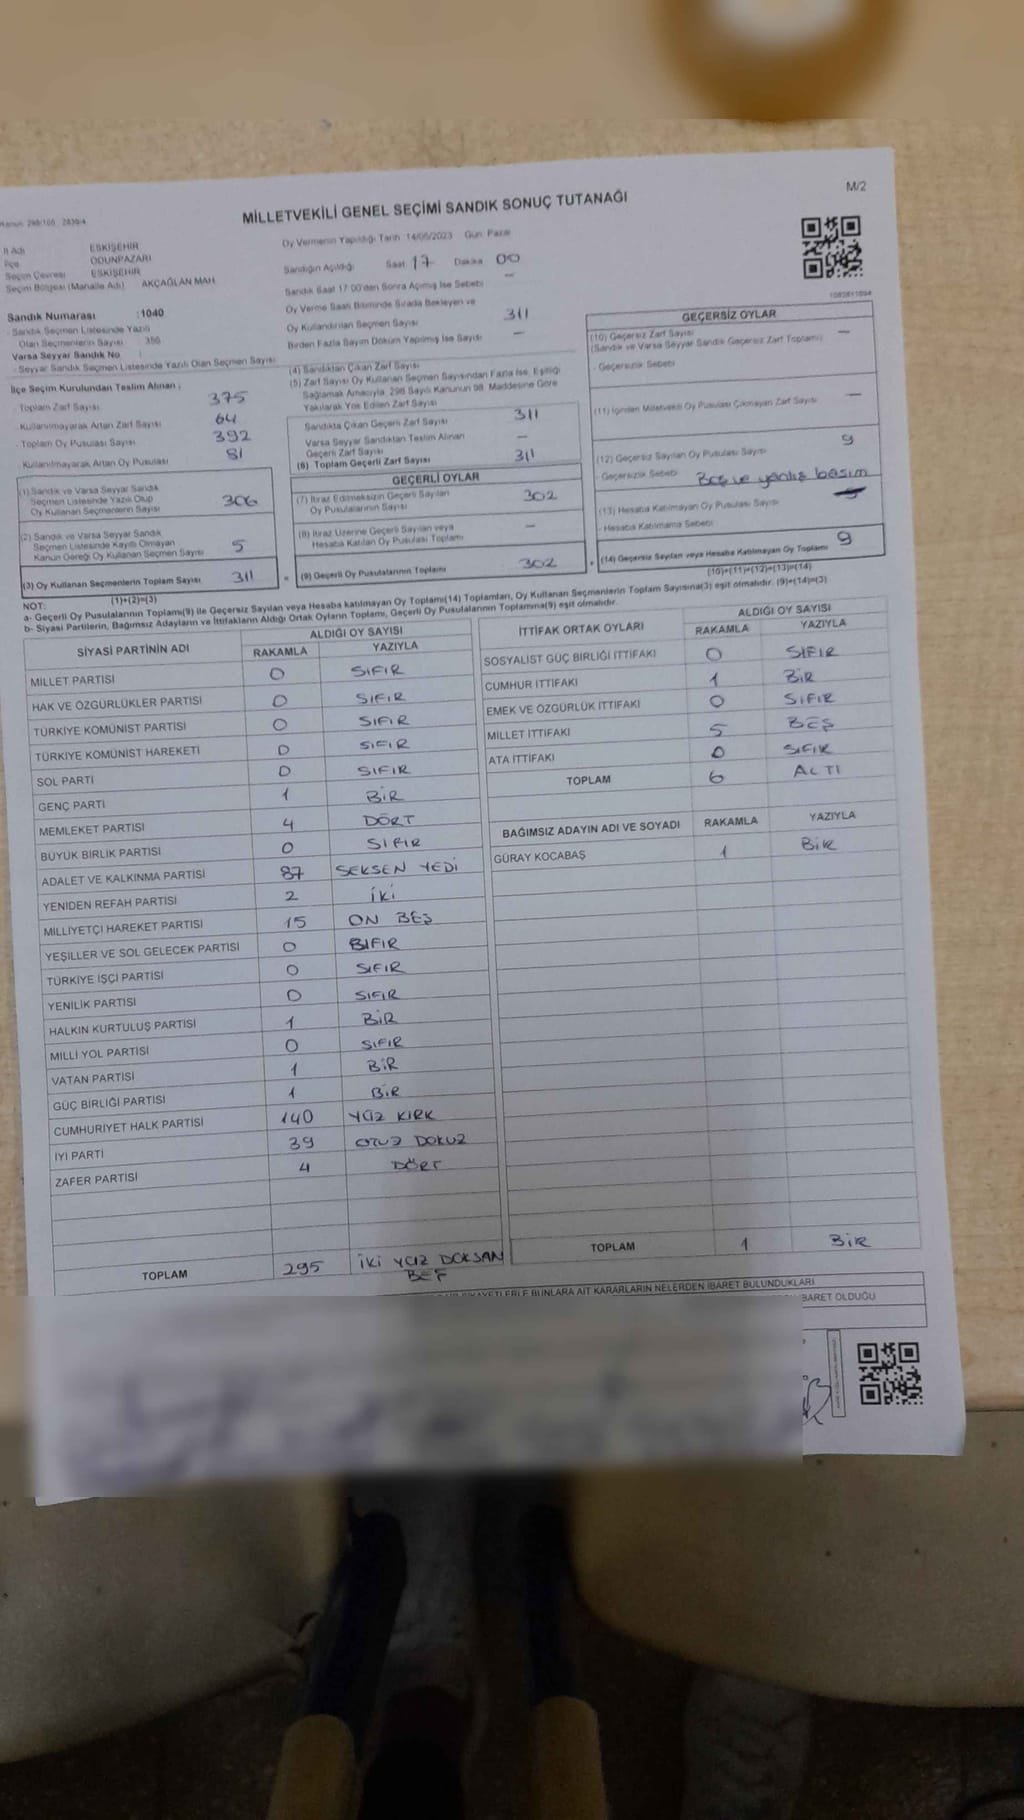 M/2
MİLLETVEKİLİ GENEL SEÇİMİ SANDIK SONUÇ TUTANAĞI
İl Adı ESKİŞEHİR
İlçe ODUNPAZARI
Seçim Çevresi ESKİŞEHİR
Seçim Bölgesi (Mahalle Adı) AKÇAĞLAN MAH.
Sandık Numarası : 1040
- Sandık Seçmen Listesinde Yazılı
Olan Seçmenlerin Sayısı
Varsa Seyyar Sandık No :
- Seyyar Sandık Seçmen Listesinde Yazılı Olan Seçmen Sayısı
İlçe Seçim Kurulundan Teslim Alınan ;
- Toplam Zarf Sayısı 375
- Kullanılmayarak Artan Zarf Sayısı 64
- Toplam Oy Pusulası Sayısı 392
- Kullanılmayarak Artan Oy Pusulası 81
(1) Sandık ve Varsa Seyyar Sandık
Seçmen Listesinde Yazılı Olup
Oy Kullanan Seçmenlerin Sayısı 306
(2) Sandık ve Varsa Seyyar Sandık
Seçmen Listesinde Kayıtlı Olmayan
Kanun Gereği Oy Kullanan Seçmen Sayısı 5
(3) Oy Kullanan Seçmenlerin Toplam Sayısı 311
(1)+(2)=(3)
Oy Vermenin Yapıldığı Tarih : 14/05/2023 Gün: Pazar
Sandığın Açıldığı Saat 17 Dakika 00
Sandık Saat 17:00'den Sonra Açılmış İse Sebebi —
Oy Verme Saati Bitiminde Sırada Bekleyen ve
Oy Kullandırılan Seçmen Sayısı 311
Birden Fazla Sayım Döküm Yapılmış İse Sayısı —
(4) Sandıktan Çıkan Zarf Sayısı
(5) Zarf Sayısı Oy Kullanan Seçmen Sayısından Fazla İse, Eşitliği
Sağlamak Amacıyla, 298 Sayılı Kanunun 98. Maddesine Göre
Yakılarak Yok Edilen Zarf Sayısı
Sandıkta Çıkan Geçerli Zarf Sayısı 311
Varsa Seyyar Sandıktan Teslim Alınan
Geçerli Zarf Sayısı —
(6) Toplam Geçerli Zarf Sayısı 311
GEÇERLİ OYLAR
(7) İtiraz Edilmeksizin Geçerli Sayılan
Oy Pusulalarının Sayısı 302
(8) İtiraz Üzerine Geçerli Sayılan veya
Hesaba Katılan Oy Pusulası Toplamı —
= (9) Geçerli Oy Pusulalarının Toplamı 302
GEÇERSİZ OYLAR
(10) Geçersiz Zarf Sayısı —
(Sandık ve Varsa Seyyar Sandık Geçersiz Zarf Toplamı)
- Geçersizlik Sebebi
(11) İçinden Milletvekili Oy Pusulası Çıkmayan Zarf Sayısı —
(12) Geçersiz Sayılan Oy Pusulası Sayısı 9
- Geçersizlik Sebebi Boş ve yanlış basım
(13) Hesaba Katılmayan Oy Pusulası Sayısı
- Hesaba Katılmama Sebebi
+ (14) Geçersiz Sayılan veya Hesaba Katılmayan Oy Toplamı 9
(10)+(11)+(12)+(13)=(14)
NOT:
a- Geçerli Oy Pusulalarının Toplamı(9) ile Geçersiz Sayılan veya Hesaba katılmayan Oy Toplamı(14) Toplamları, Oy Kullanan Seçmenlerin Toplam Sayısına(3) eşit olmalıdır. (9)+(14)=(3)
b- Siyasi Partilerin, Bağımsız Adayların ve İttifakların Aldığı Ortak Oyların Toplamı, Geçerli Oy Pusulalarının Toplamına(9) eşit olmalıdır.
SİYASİ PARTİNİN ADI ALDIĞI OY SAYISI
RAKAMLA YAZIYLA
MİLLET PARTİSİ 0 SIFIR
HAK VE ÖZGÜRLÜKLER PARTİSİ 0 SIFIR
TÜRKİYE KOMÜNİST PARTİSİ 0 SIFIR
TÜRKİYE KOMÜNİST HAREKETİ 0 SIFIR
SOL PARTİ 0 SIFIR
GENÇ PARTİ 1 BİR
MEMLEKET PARTİSİ 4 DÖRT
BÜYÜK BİRLİK PARTİSİ 0 SIFIR
ADALET VE KALKINMA PARTİSİ 87 SEKSEN YEDİ
YENİDEN REFAH PARTİSİ 2 İKİ
MİLLİYETÇİ HAREKET PARTİSİ 15 ON BEŞ
YEŞİLLER VE SOL GELECEK PARTİSİ 0 SIFIR
TÜRKİYE İŞÇİ PARTİSİ 0 SIFIR
YENİLİK PARTİSİ 0 SIFIR
HALKIN KURTULUŞ PARTİSİ 1 BİR
MİLLİ YOL PARTİSİ 0 SIFIR
VATAN PARTİSİ 1 BİR
GÜÇ BİRLİĞİ PARTİSİ 1 BİR
CUMHURİYET HALK PARTİSİ 140 YÜZ KIRK
İYİ PARTİ 39 OTUZ DOKUZ
ZAFER PARTİSİ 4 DÖRT
TOPLAM 295 İKİ YÜZ DOKSAN
BEŞ
İTTİFAK ORTAK OYLARI ALDIĞI OY SAYISI
RAKAMLA YAZIYLA
SOSYALİST GÜÇ BİRLİĞİ İTTİFAKI 0 SIFIR
CUMHUR İTTİFAKI 1 BİR
EMEK VE ÖZGÜRLÜK İTTİFAKI 0 SIFIR
MİLLET İTTİFAKI 5 BEŞ
ATA İTTİFAKI 0 SIFIR
TOPLAM 6 ALTI
BAĞIMSIZ ADAYIN ADI VE SOYADI RAKAMLA YAZIYLA
GÜRAY KOCABAŞ 1 BİR
TOPLAM 1 BİR
BUNLARA AİT KARARLARIN NELERDEN İBARET BULUNDUKLARI
İBARET OLDUĞU